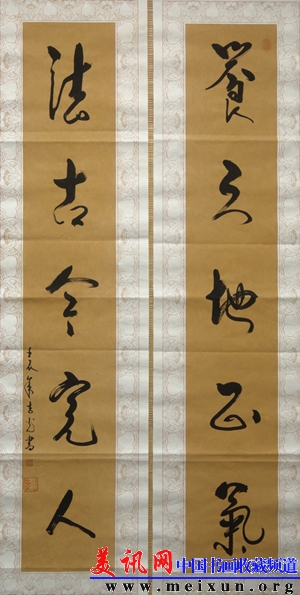 養天地正氣
法古今完人
美讯网 中国书画收藏频道
www.meixun.org